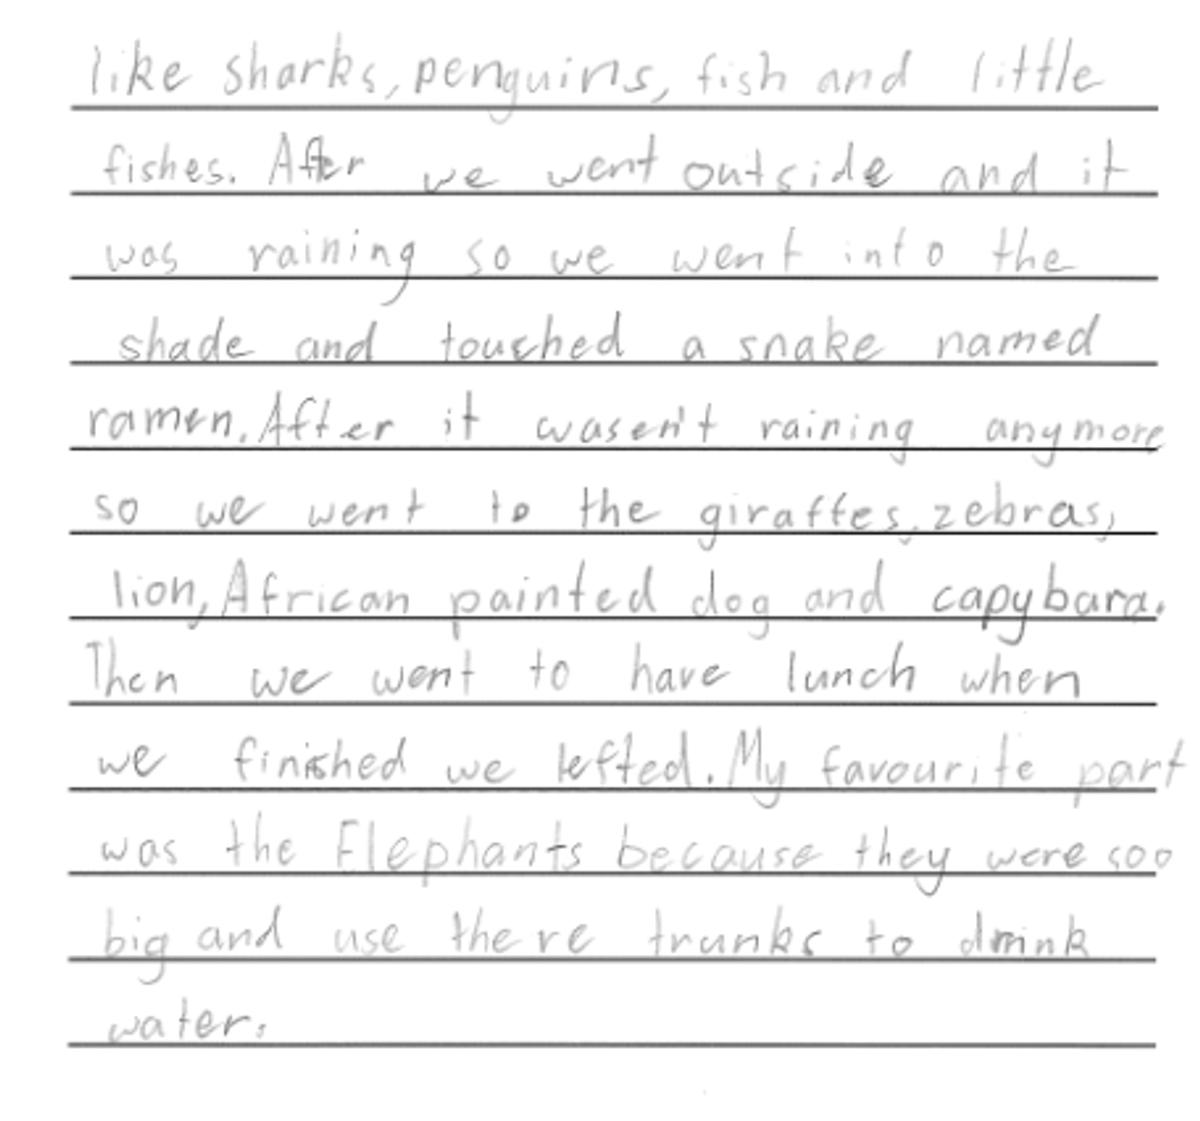 like sharks, penguins, fish and little
fishes. After we went outside and it
was raining so we went into the
shade and touched a snake named
ramen. After it wasen't raining anymore
so we went to the giraffes, zebras,
lion, African painted dog and capybara.
Then we went to have lunch when
we finished we lefted. My favourite part
was the Elephants because they were soo
big and use there trunks to drink
water.